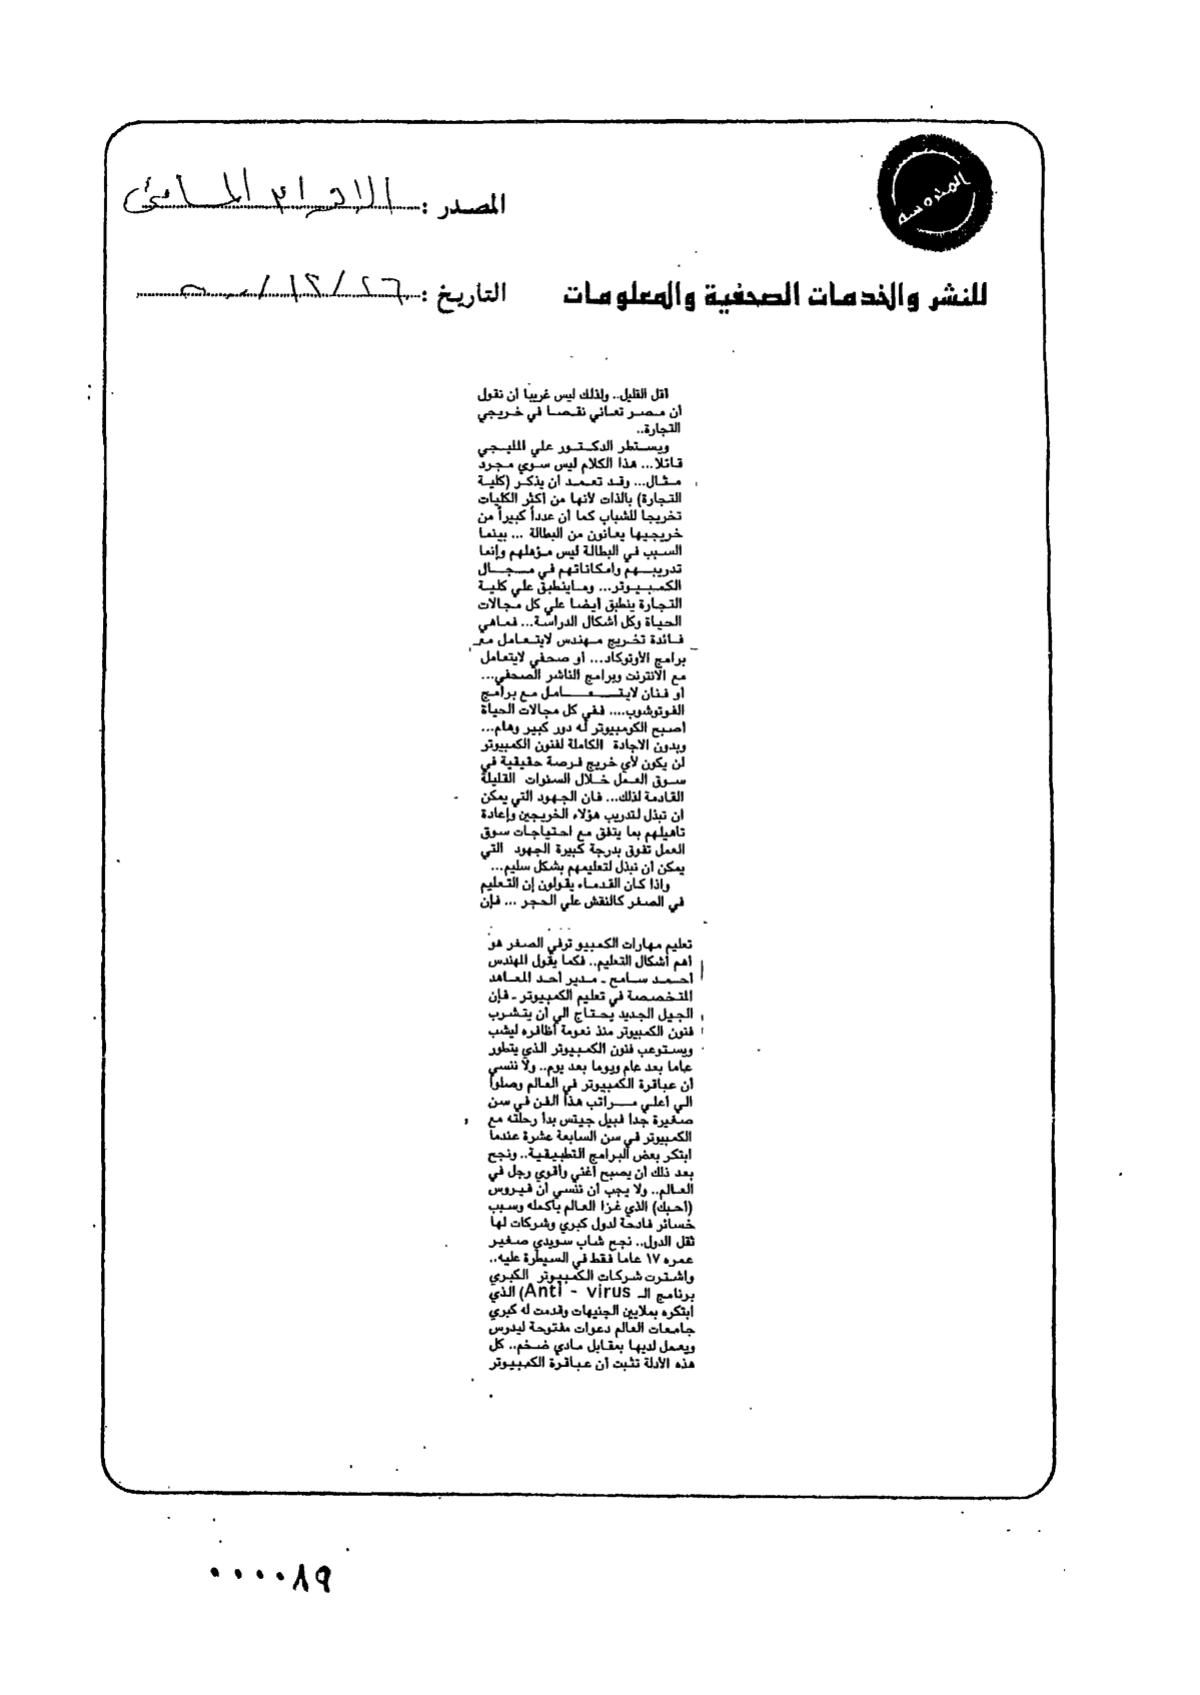 المحروسة
المصدر : الاهرام المسائى
للنشر والخدمات الصحفية والمعلومات
التاريخ : ٢٦/١٢/
أقل القليل.. ولذلك ليس غريبا أن نقول
أن مصر تعاني نقصا في خريجي
التجارة..
ويستطر الدكتور علي المليجي
قائلا... هذا الكلام ليس سوي مجرد
مثال... وقد تعمد أن يذكر (كلية
التجارة) بالذات لأنها من أكثر الكليات
تخريجا للشباب كما أن عدداً كبيراً من
خريجيها يعانون من البطالة ... بينما
السبب في البطالة ليس مؤهلهم وإنما
تدريبهم وامكاناتهم في مجال
الكمبيوتر... وماينطبق علي كلية
التجارة ينطبق أيضا علي كل مجالات
الحياة وكل أشكال الدراسة... فماهي
فائدة تخريج مهندس لايتعامل مع
برامج الأوتوكاد... أو صحفي لايتعامل
مع الانترنت وبرامج الناشر الصحفي...
أو فنان لايتعامل مع برامج
الفوتوشوب.... ففي كل مجالات الحياة
أصبح الكومبيوتر له دور كبير وهام...
وبدون الاجادة الكاملة لفنون الكمبيوتر
لن يكون لأي خريج فرصة حقيقية في
سوق العمل خلال السنوات القليلة
القادمة لذلك... فان الجهود التي يمكن
أن تبذل لتدريب هؤلاء الخريجين وإعادة
تأهيلهم بما يتفق مع احتياجات سوق
العمل تفوق بدرجة كبيرة الجهود التي
يمكن أن نبذل لتعليمهم بشكل سليم...
واذا كان القدماء يقولون إن التعليم
في الصغر كالنقش علي الحجر ... فإن
تعليم مهارات الكمبيو ترفي الصغر هو
أهم أشكال التعليم.. فكما يقول المهندس
أحمد سامح - مدير أحد المعاهد
المتخصصة في تعليم الكمبيوتر - فإن
الجيل الجديد يحتاج الي أن يتشرب
فنون الكمبيوتر منذ نعومة أظافره ليشب
ويستوعب فنون الكمبيوتر الذي يتطور
عاما بعد عام ويوما بعد يوم.. ولا ننسي
أن عباقرة الكمبيوتر في العالم وصلوا
الي أعلي مراتب هذا الفن في سن
صغيرة جدا فبيل جيتس بدأ رحلته مع
الكمبيوتر في سن السابعة عشرة عندما
ابتكر بعض البرامج التطبيقية.. ونجح
بعد ذلك أن يصبح أغني وأقوي رجل في
العالم.. ولا يجب أن ننسي أن فيروس
(أحبك) الذي غزا العالم بأكمله وسبب
خسائر فادحة لدول كبري وشركات لها
ثقل الدول.. نجح شاب سويدي صغير
عمره ١٧ عاما فقط في السيطرة عليه..
واشترت شركات الكمبيوتر الكبري
برنامج الـ Anti - virus) الذي
ابتكره بملايين الجنيهات وقدمت له كبري
جامعات العالم دعوات مفتوحة ليدرس
ويعمل لديها بمقابل مادي ضخم.. كل
هذه الأدلة تثبت أن عباقرة الكمبيوتر
٠٠٠٠٨٩